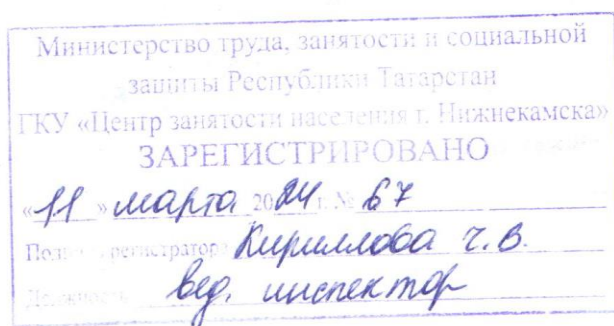 Министерство труда, занятости и социальной
защиты Республики Татарстан
ГКУ «Центр занятости населения г. Нижнекамска»
ЗАРЕГИСТРИРОВАНО
«11» марта 2024 г. № 67
регистратора Кириллова Г.В.
Должность вед. инспектор